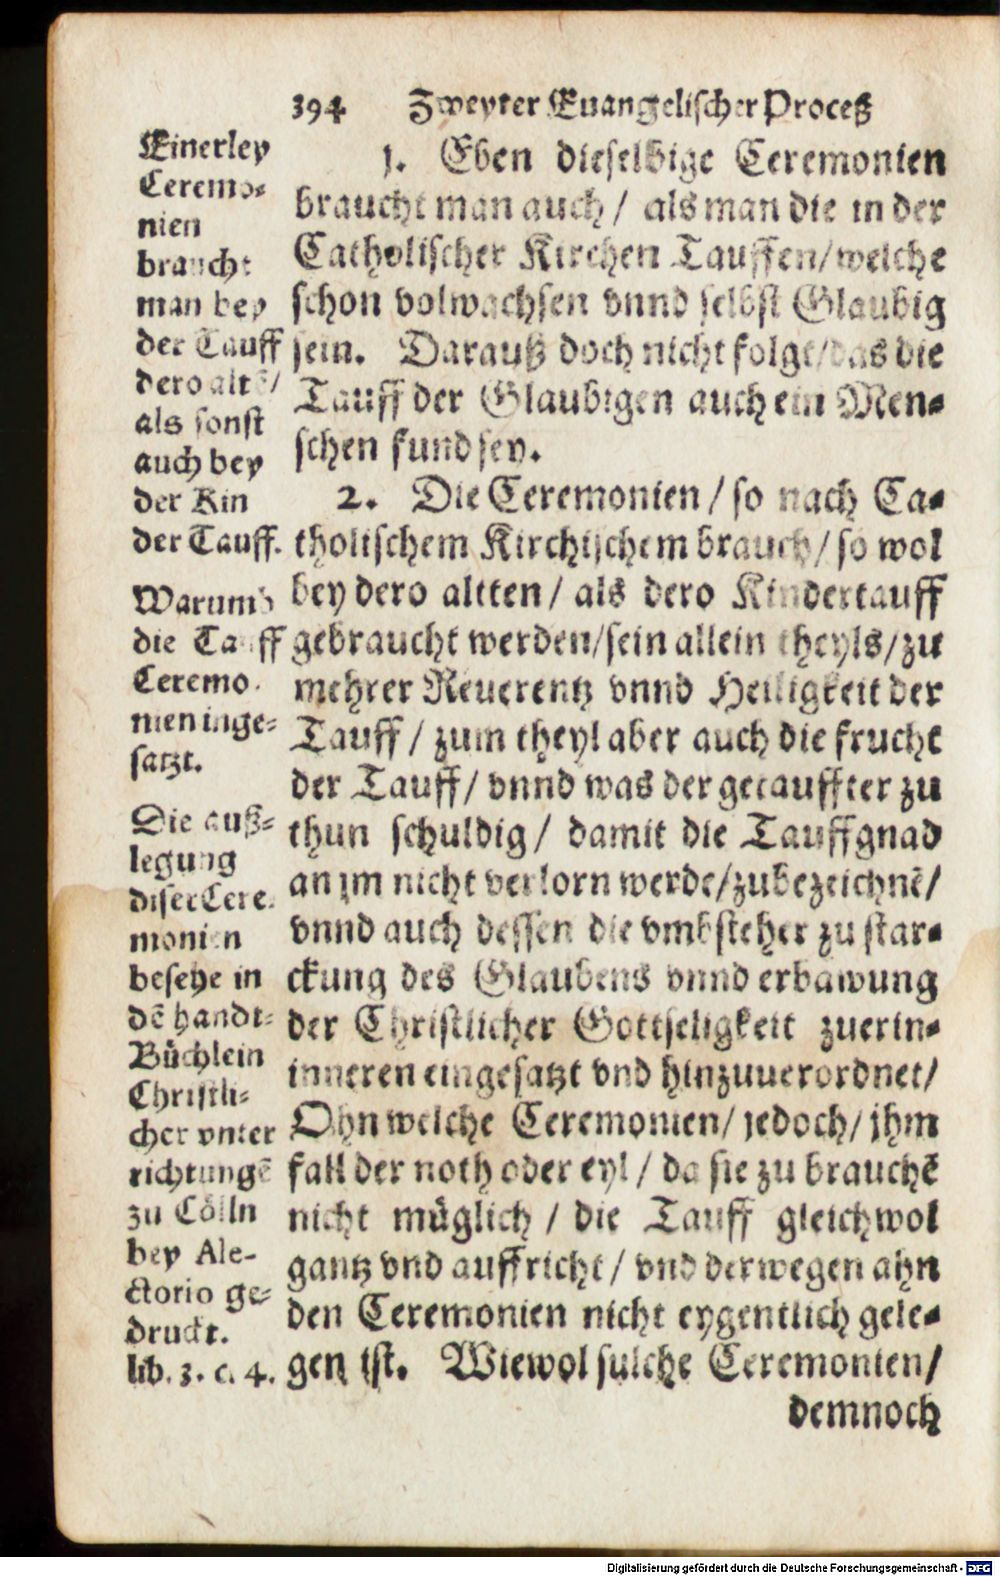 394 Zweyter Euangelischer Proceß
Einerley
Ceremo-
nien
braucht
man bey
der Tauff
dero altē/
als sonst
auch bey
der Kin
der Tauff.
Warumb
die Tauff
Ceremo.
nien inge-
satzt.
Die auß-
legung
diser Cere.
monien
besehe in
dē handt-
Büchlein
Christli-
cher vnter
richtungē
zu Cölln
bey Ale-
ctorio ge-
druckt.
lib. 3. c. 4.
1. Eben dieselbige Ceremonien
braucht man auch / als man die in der
Catholischer Kirchen Tauffen/welche
schon volwachsen vnnd selbst Glaubig
sein. Darauß doch nicht folgt/das die
Tauff der Glaubigen auch ein Men-
schen fund sey.
2. Die Ceremonien / so nach Ca-
tholischem Kirchischem brauch / so wol
bey dero altten / als dero Kindertauff
gebraucht werden/sein allein theyls/zu
mehrer Reuerentz vnnd Heiligkeit der
Tauff / zum theyl aber auch die frucht
der Tauff / vnnd was der getauffter zu
thun schuldig / damit die Tauffgnad
an jm nicht verlorn werde/zubezeichnē/
vnnd auch dessen die vmbsteher zu star-
ckung des Glaubens vnnd erbawung
der Christlicher Gottseligkeit zuerin-
inneren eingesatzt vnd hinzuuerordnet/
Ohn welche Ceremonien/ jedoch/ jhm
fall der noth oder eyl / da sie zu brauchē
nicht müglich / die Tauff gleichwol
gantz vnd auffricht / vnd derwegen ahn
den Ceremonien nicht eygentlich gele-
gen ist. Wiewol sulche Ceremonien/
demnoch
Digitalisierung gefördert durch die Deutsche Forschungsgemeinschaft - DFG